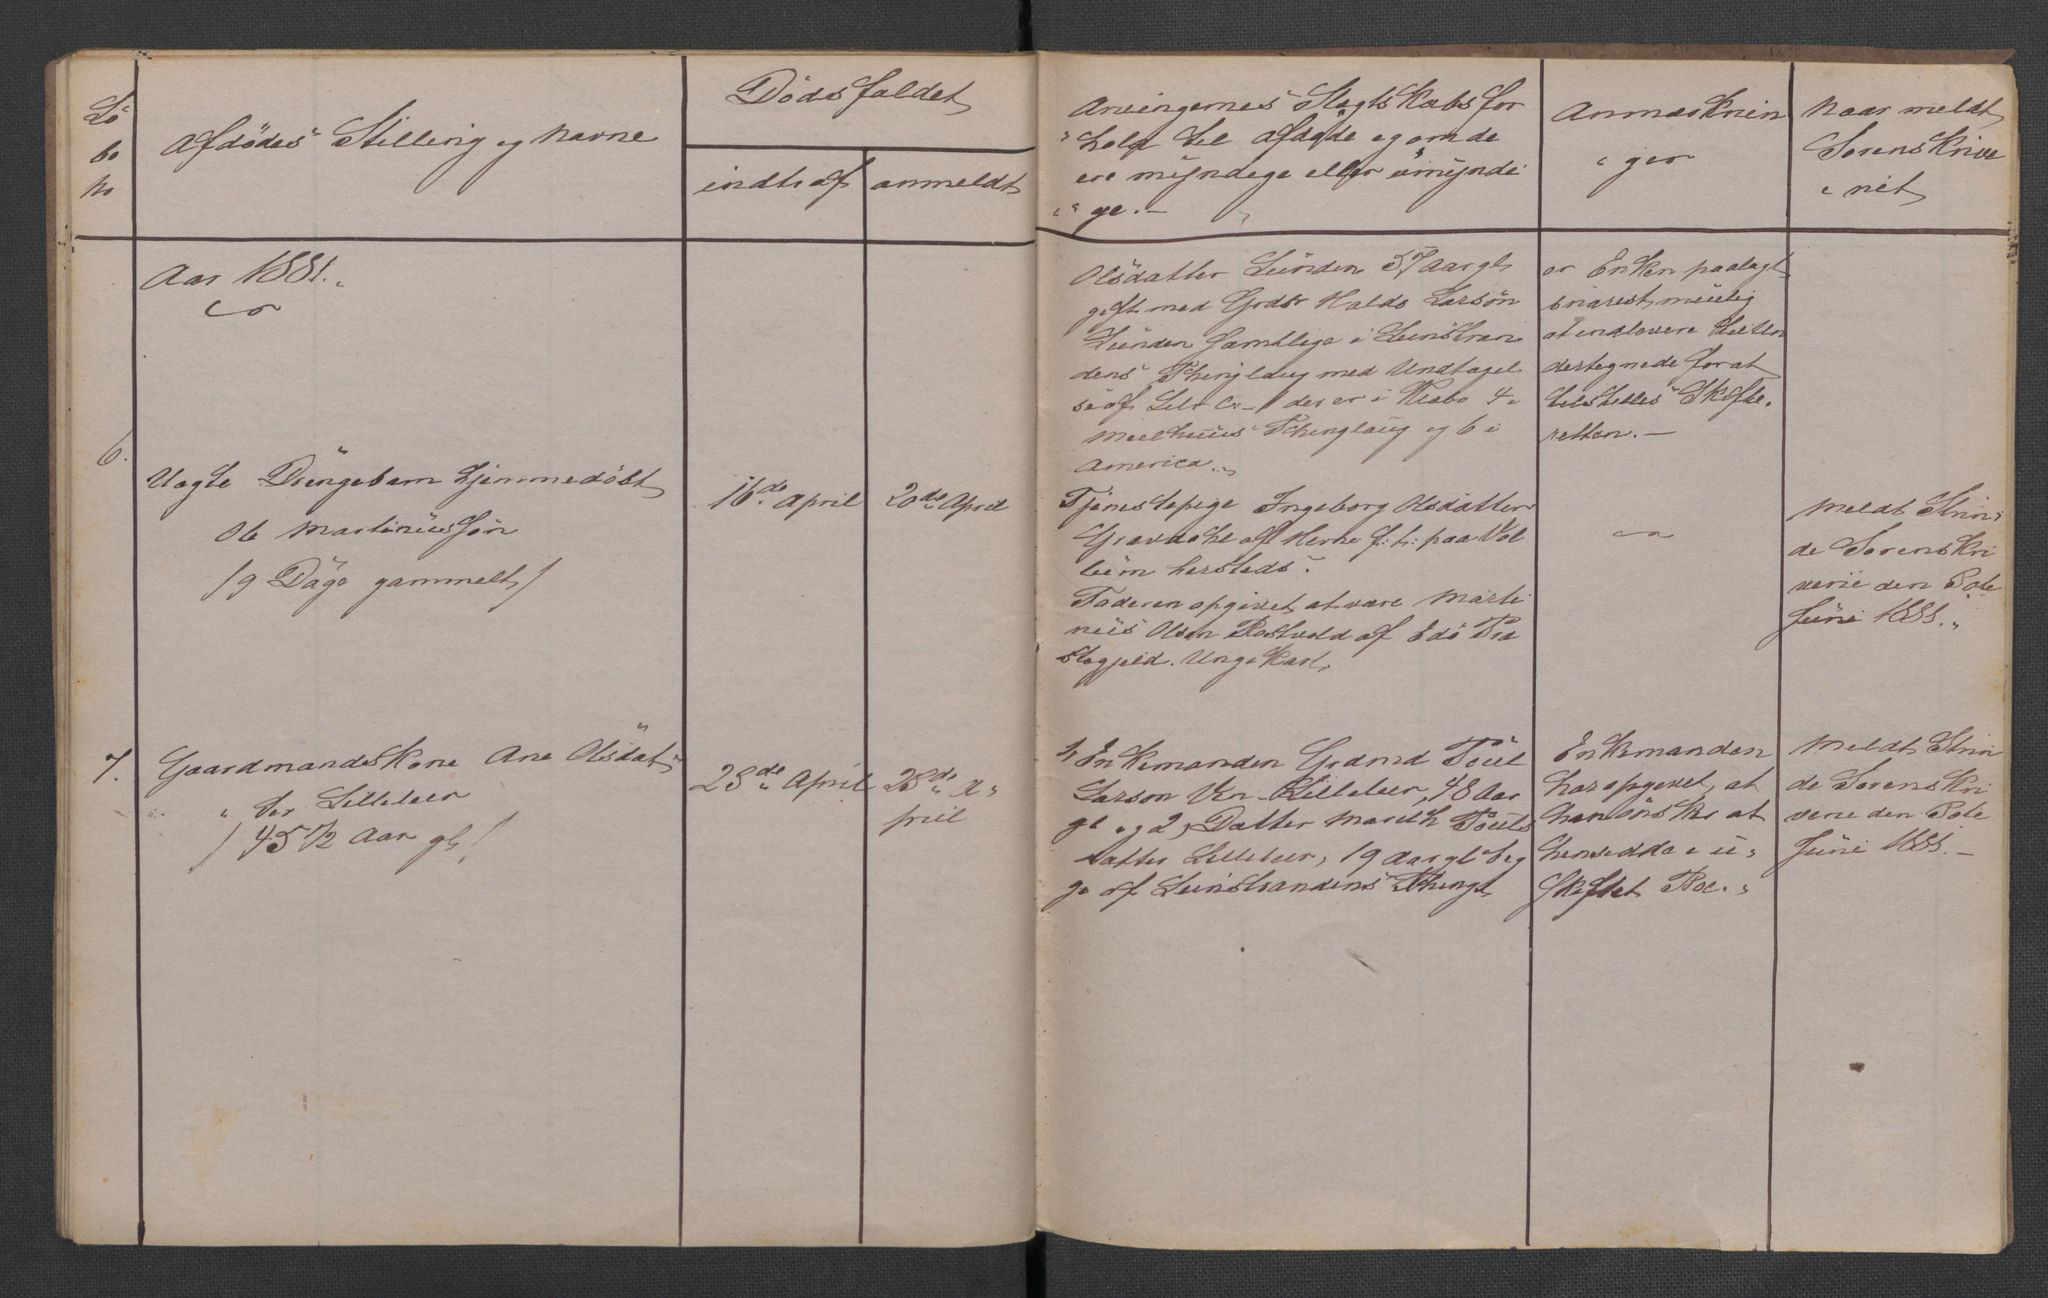 Lö
be
No
Afdödes Stilling og Navne
Dödsfaldet
indtraf
anmeldt
Arvingernes Slegtskabsfor
hold til Afdøde og om de
ere mÿndige eller umÿndi
ge. —
Anmærknin
ger
Naar meldt
Sorenskrive
riet
Aar 1881.
Olsdatter Lunden 57 Aar gl.
gift med Grdbr Halds Larsön
Lunden samtlige i Leinstran
dens Thinglaug med Undtagel
se af Litr C. der er i Klæbo 4 i
Meelhuus Thinglaug og 6 i
America.
er Enken paalagt
snarest muelig
at indlevere til Un
dertegnede for at
tilstilles Skifte.
retten. —
6.
Uægte Drengebarn hjemmedöbt
Ole Martinussön
/9 Dage gammelt/
16de April
20de April
Tjenestepige Ingeborg Olsdatter
Gravdahl af Herne f: t: paa Vol
leim hersteds.
Faderen opgivet at være Marti
nus Olsen Rostvold af Edö Præ
stegjeld. Unge Karl.
Meldt Strin
de Sorenskri
verie den 30te
Juni 1881.
7.
Gaardmandskone Ane Olsdat
ter Lilleleer
/45 1/2 Aar gl/
23de April
28de A
pril
1, Enkemanden Grdmd Poul
Larson Lilleleer, 48 Aar
gl og 2, Datter Marith Pouls
datter Lilleleer, 19 Aar gl beg
ge af Leinstrandens Thingl
Enkemanden
har opgivet, at
han önsker at
hensidde i u
skiftet Boe.
Meldt Strin
de Sorenskri
verie den 30te
Juni 1881. —